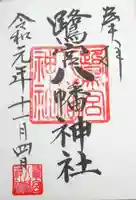 奉拝
鷺宮八幡神社
令和元年十一月四日